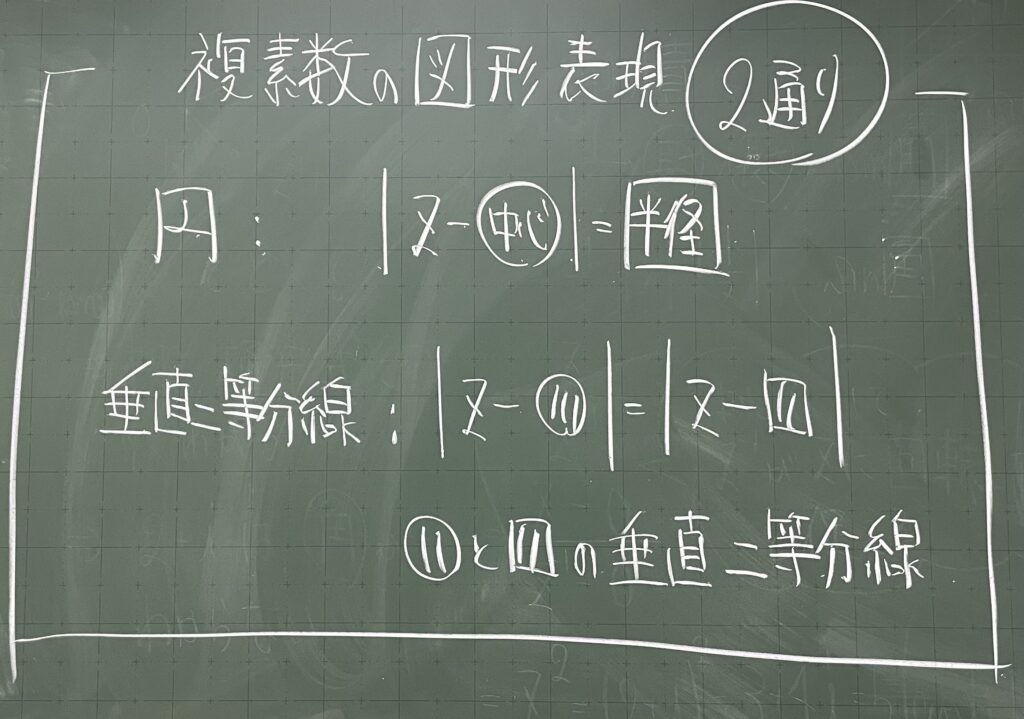 複素数の図形表現 2通り
円: |z-中心|=半径
垂直二等分線: |z-〇|=|z-□|
〇と□の垂直二等分線